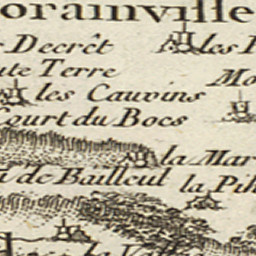 orainville
Decrêt
les
Terre
Mo
les Cauvins
Court du Bocs
la Mar
de Bailleul
la Pil
la